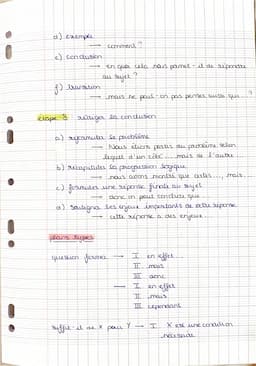 d) exemple
→ comment ?
e) conclusion
→ en quoi cela nous permet-il de répondre
au sujet ?
f) transition
→ mais ne peut-on pas penser aussi que ... ?
étape 3 rédiger la conclusion
a) reformuler le problème
→ Nous étions partis du problème selon
lequel d'un côté ..., mais de l'autre ...
b) récapituler la progression logique
→ nous avons montré que certes..., mais...
c) formuler une réponse finale au sujet
→ donc on peut conclure que
d) souligner les enjeux importants de cette réponse
→ cette réponse a des enjeux
plans types
question fermée → I en effet
II mais
III donc
→ I en effet
II mais
III cependant
suffit-il de X pour Y → I X est une condition
nécessaire